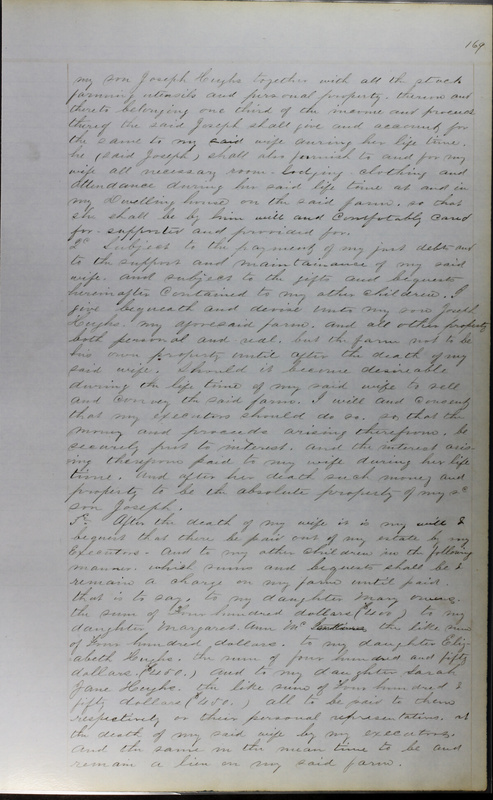 169
my son Joseph Hughs together with all th stock
farming utensils and personal property. thereon and
thereto belonging one third of the income and proceeds
thereof the said Joseph shall give and account for
the same to my said wife during her life time.
he (said Joseph) shall also furnish to and for my
wife all necessary room. lodging. clothing and
attendance during her said life time at and in
my Dwelling house on the said farm. so that
she shall be by him well and Comfortably cared
for. supported and provided for.
Subject to the payment of my just debts and
to the support and maintainance of my said
wife. and subject to the gifts and bequests
hereinafter Contained to my other children. I
give bequeath and devise unto my son Joseph
Hughs. my aforesaid farm. and all other property
both personal and real. but the farm not to be
his own property until after the death of my
said wife. Should it become desireable
during the life time of my said wife to sell
and Convey the said farm. I will and Consent
that my executors should do so. so that the
money and proceeds arising therefrom. be
securely put to interest. and the interest aris-
ing therefrom paid to my wife during her life
time. and after her death such money and
property to be the absolute property of my sd
son Joseph.
After the death of my wife it is my will &
bequest that there be paid out of my estate by my
Executors. And to my other children in the following
manner. which sums and bequests shall be &
remain a charge on my farm until paid.
that is to say. to my daughter Mary Owens.
the sum of Four hundred dollars ($400) to my
daughter Margaret Ann Mc the like sum
of Four hundred dollars. to my daughter Eliz-
abeth Hughs. the sum of four hundred and fifty
dollars. ($450.) and to my daughter Sarah
Jane Hughs. the like sum of Four hundred &
fifty dollars ($450.) all to be paid to them
respectively or their personal representatives. at
the death of my said wife by my executors.
and the same in the mean time to be and
remain a lien on my said farm.